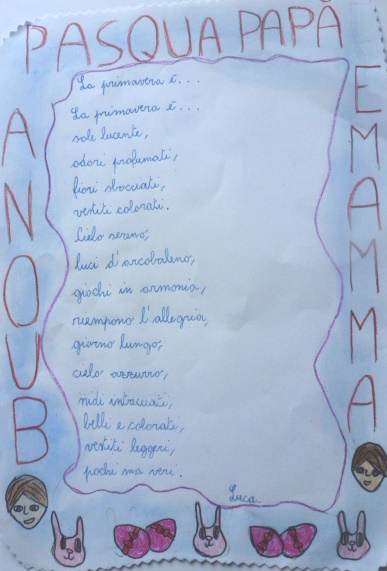 BUONA
PASQUA PAPÀ
E MAMMA
La primavera è...
La primavera è...
sole lucente,
odori profumati,
fiori sbocciati,
vestiti colorati.
Cielo sereno,
luci d'arcobaleno,
giochi in armonia,
riempono l'allegria,
giorno lungo,
cielo azzurro,
nidi intrecciati,
belli e colorati,
vestiti leggeri,
pochi ma veri.
Luca